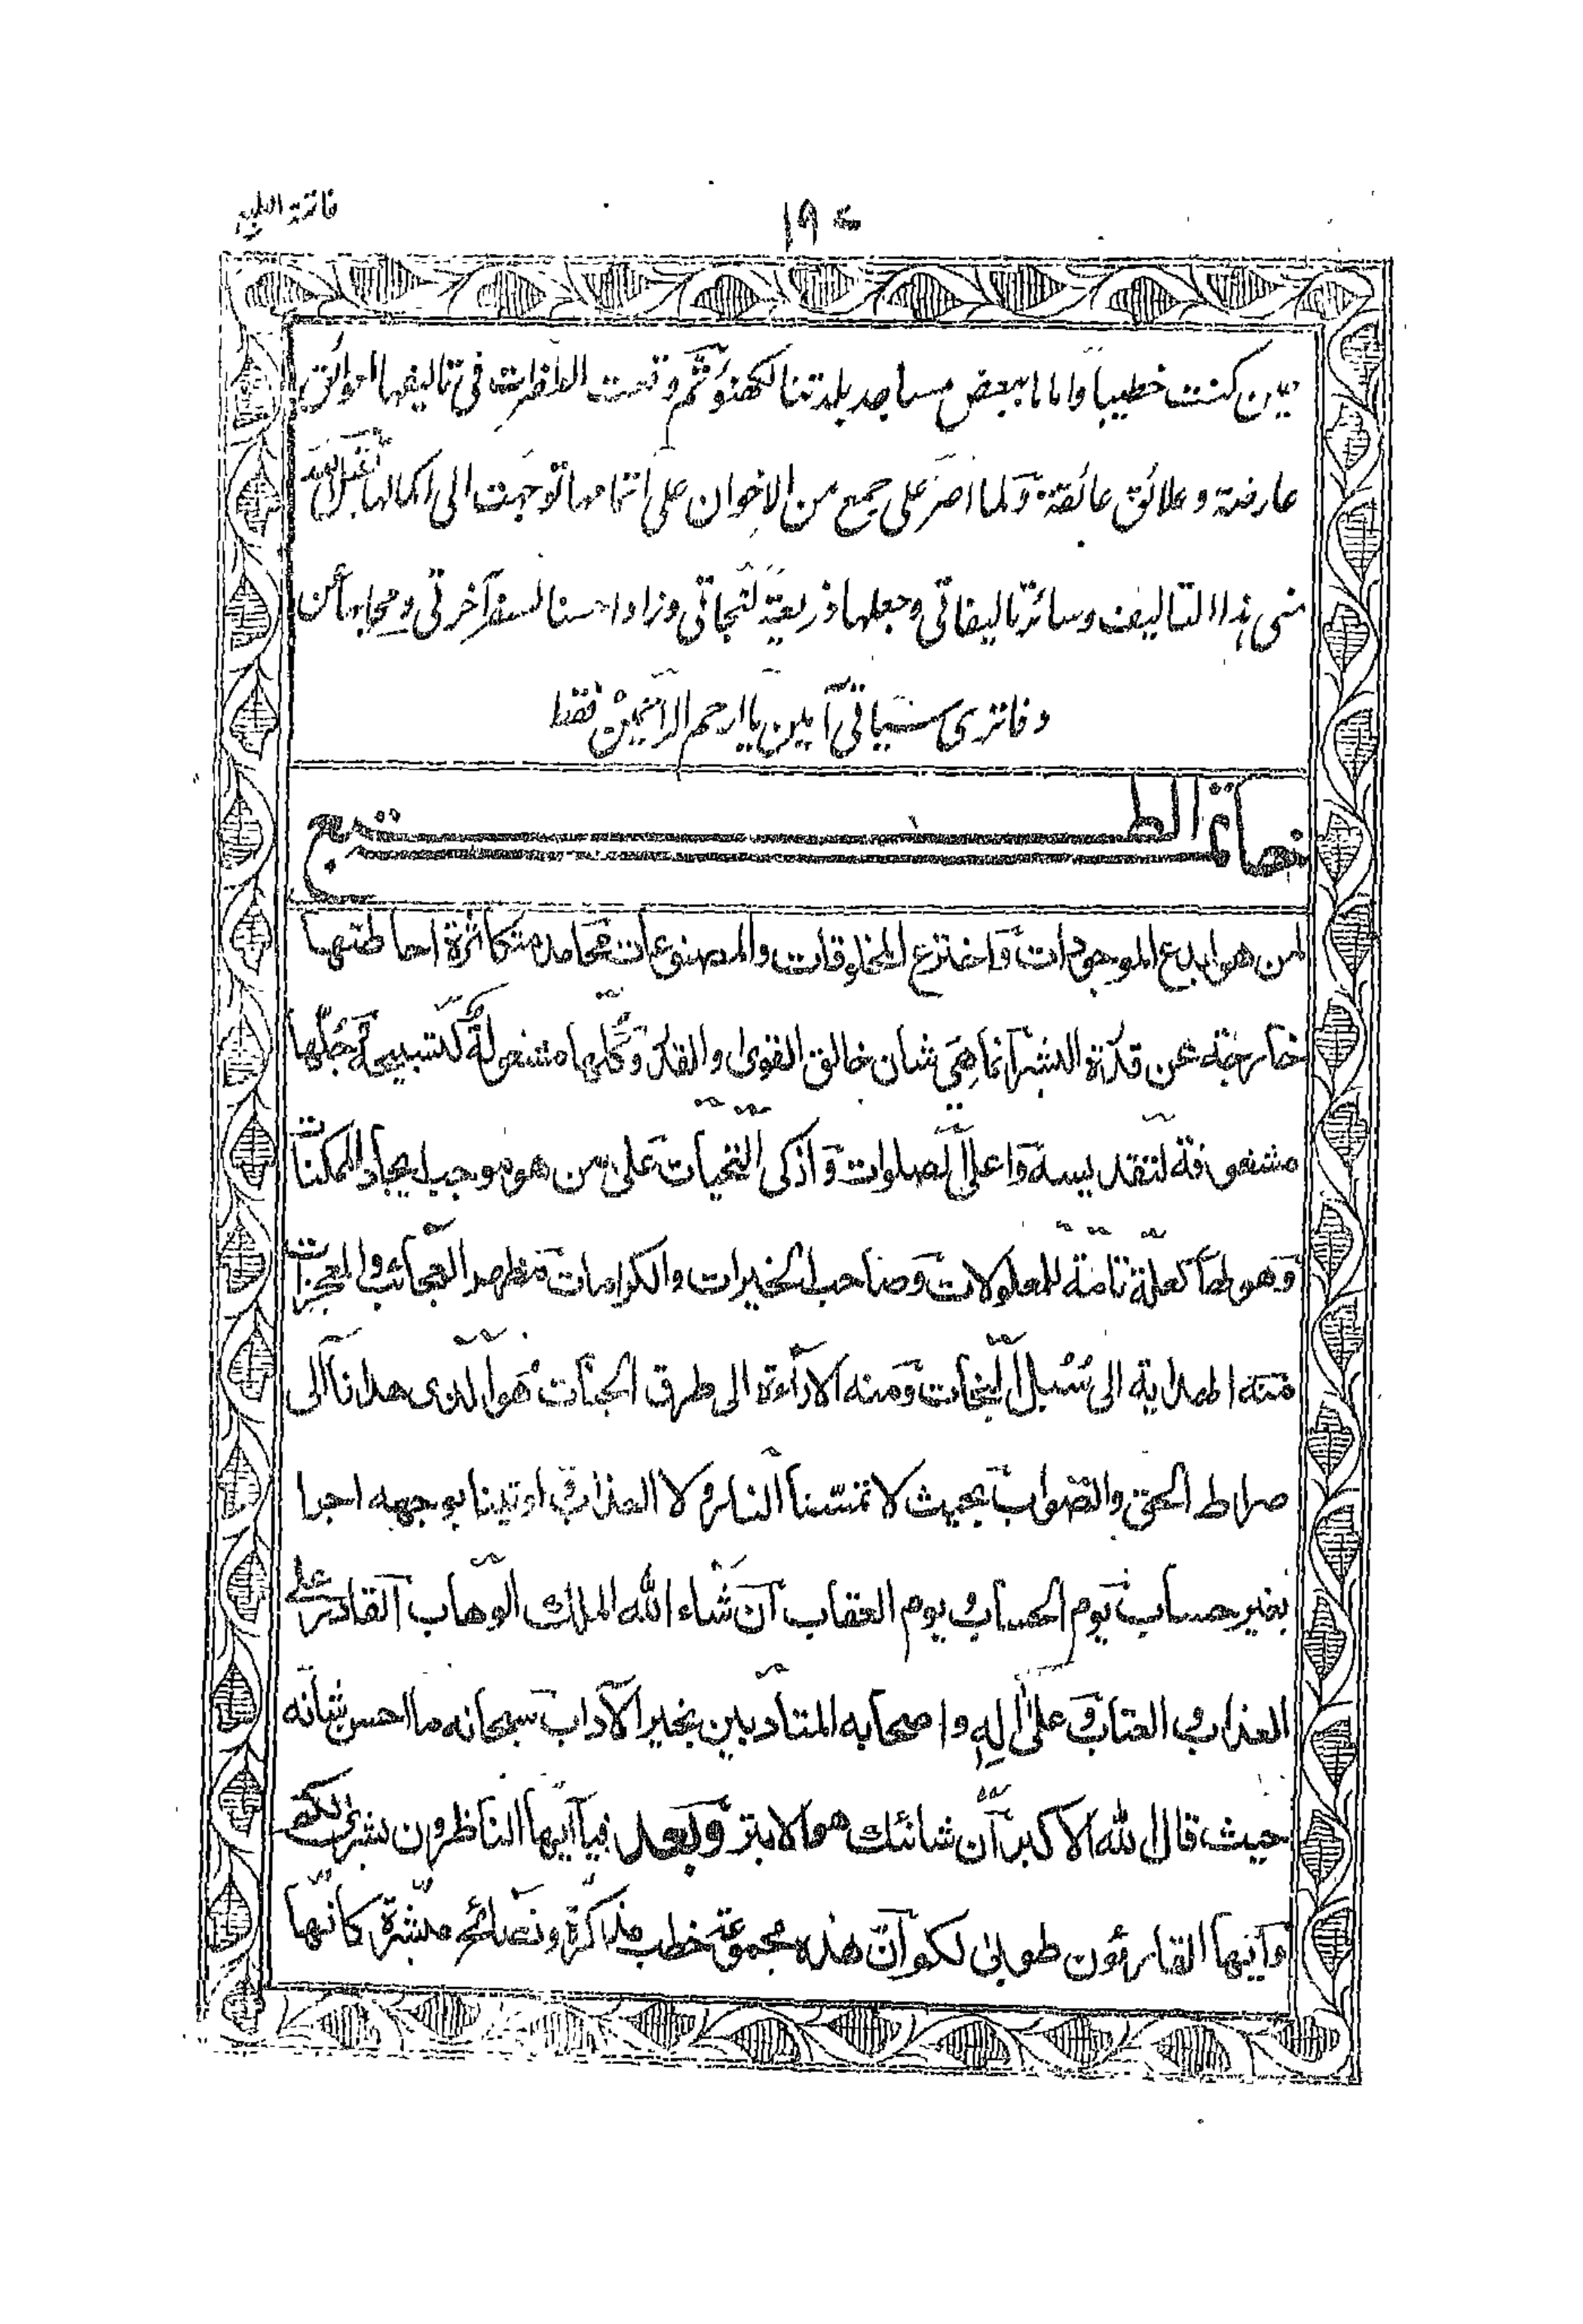 خاتمة الطبع
١٩٤
حين كنت خطيبا واماما ببعض مساجد بلدتنا لكهنؤ ثم وقعت الفترات في تاليفها لعوائق
عارضة وعلائق عائقة ولما اصر علي جمع من الاخوان على اتمامها توجهت الى اكمالها تقبل الله
مني هذا التاليف وسائر تاليفاتي وجعلها ذريعة لنجاتي وزادا حسنا لسفر آخرتي وحجابا عن
دفاتر سيآتي آمين يا ارحم الراحمين فقط
خاتمة الطبع
لمن هو ابدع الموجودات واخترع المخلوقات والمصنوعات محامد متكاثرة احاطتها
خارجة عن قدرة البشر انما هي شان خالق القوى والقدر وكلها مشغولة لتسبيحه وجلها
مشغوفة لتقديسه واعلى الصلوات وازكى التحيات على من هو موجب لايجاد الممكنات
وهو لها كعلة تامة للمعلولات وصاحب الخيرات والكرامات مظهر العجائب والمعجزات
منه الهداية الى سبل النجات ومنه الاراءة الى طرق الجنات هو الذى هدانا الى
صراط الحق والصواب بحيث لا تمسنا النار ولا العذاب و اوتينا بوجهه اجرا
بغير حساب يوم الحساب و يوم العقاب ان شاء الله الملك الوهاب القادر على
العذاب و العتاب و على اله واصحابه المتادبين بخير الآداب سبحانه ما احسن شانه
حيث قال الله الاكبر ان شانئك هو الابتر وبعد فيا ايها الناظرون بشرى لكم
وايها القارئون طوبى لكم ان هذه مجموعة خطب مذاكرة ونصائح مبشرة كانها